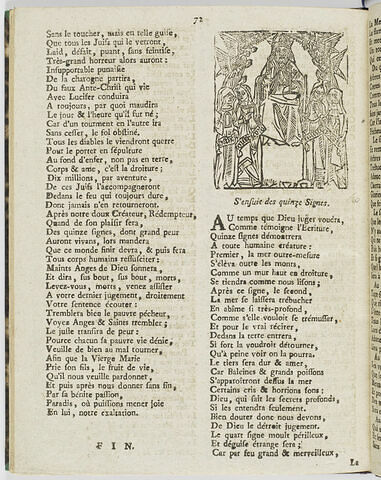 72
Sans le toucher, mais en telle guise,
Que tous les Juifs qui le verront,
Laid, défait, puant, sans feintise,
Très-grand horreur alors auront:
Insupportable punaisie
De la charogne partira,
Du faux Ante-Christ qui vie
Avec Lucifer conduira
A toujours, par quoi maudira
Le jour & l'heure qu'il fut né;
Car d'un tourment en l'autre ira
Sans cesser, le fol obstiné,
Tous les diables le viendront querre
Pour le porter en sépulture
Au fond d'enfer, non pas en terre,
Corps & ame, c'est la droiture;
Dix millions, par aventure,
De ces Juifs l'accompagneront
Dedans le feu qui toujours dure,
Dont jamais n'en retourneront.
Après notre doux Créateur, Rédempteur,
Quand de son plaisir sera,
Des quinze signes, dont grand peur
Auront vivans, lors mandera
Que ce monde finit devra, & puis fera
Tous corps humains ressusciter:
Maints Anges de Dieu sonnera,
Et dira, sus bout, sus bout, morts,
Levez-vous, morts, venez assister
A votre dernier jugement, droitement
Votre sentence écouter:
Tremblera bien le pauvre pécheur,
Voyez Anges & Saints trembler;
Le juste transira de peur:
Pource chacun sa pauvre vie dénie,
Veuille de bien au mal tourner,
Afin que la Vierge Marie
Prie son fils, le fruit de vie,
Qu'il nous veuille pardonner,
Et puis après nous donner sans fin,
Par sa bénite passion,
Paradis, où puissions mener joie
En lui, notre exaltation.
FIN.
S'ensuit des quinze Signes.
AU temps que Dieu juger voudra,
Comme témoigne l'Ecriture,
Quinze signes démontrera
A toute humaine créature:
Premier, la mer outre-mesure
S'éléva outre les monts,
Comme un mur haut en droiture,
Se tiendra comme nous lisons;
Après ce signe, le second,
La mer se laissera trébucher
En abîme si très-profond,
Comme s'elle vouloit se trémusser,
Et pour le vrai réciter
Dedans la terre entrera,
Si fort la voudroit détourner,
Qu'à peine voir on la pourra.
Le tiers sera dur & amer,
Car Baleines & grands poissons
S'apparoîtront dessus la mer
Certains cris & horrions sons:
Dieu, qui sait les secrets profonds,
Si les entendra seulement.
Bien douter donc nous devons,
De Dieu le détroit jugement.
Le quart signe moult périlleux,
Et déguisé étrange sera;
Car par feu grand & merveilleux,
La